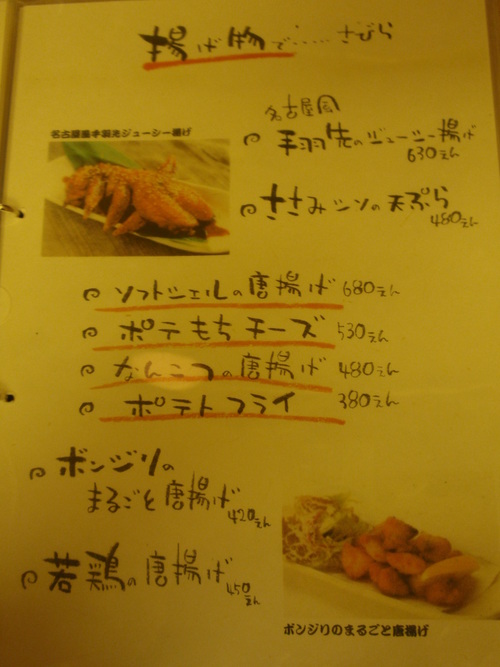 揚げ物で……さびら
名古屋風手羽先ジューシー揚げ
名古屋風
手羽先のジューシー揚げ
630えん
ささみシソの天ぷら
480えん
ソフトシェルの唐揚げ 680えん
ポテもちチーズ 530えん
なんこつの唐揚げ 480えん
ポテトフライ 380えん
ボンジリの
まるごと唐揚げ
420えん
若鶏の唐揚げ
450えん
ボンジリのまるごと唐揚げ